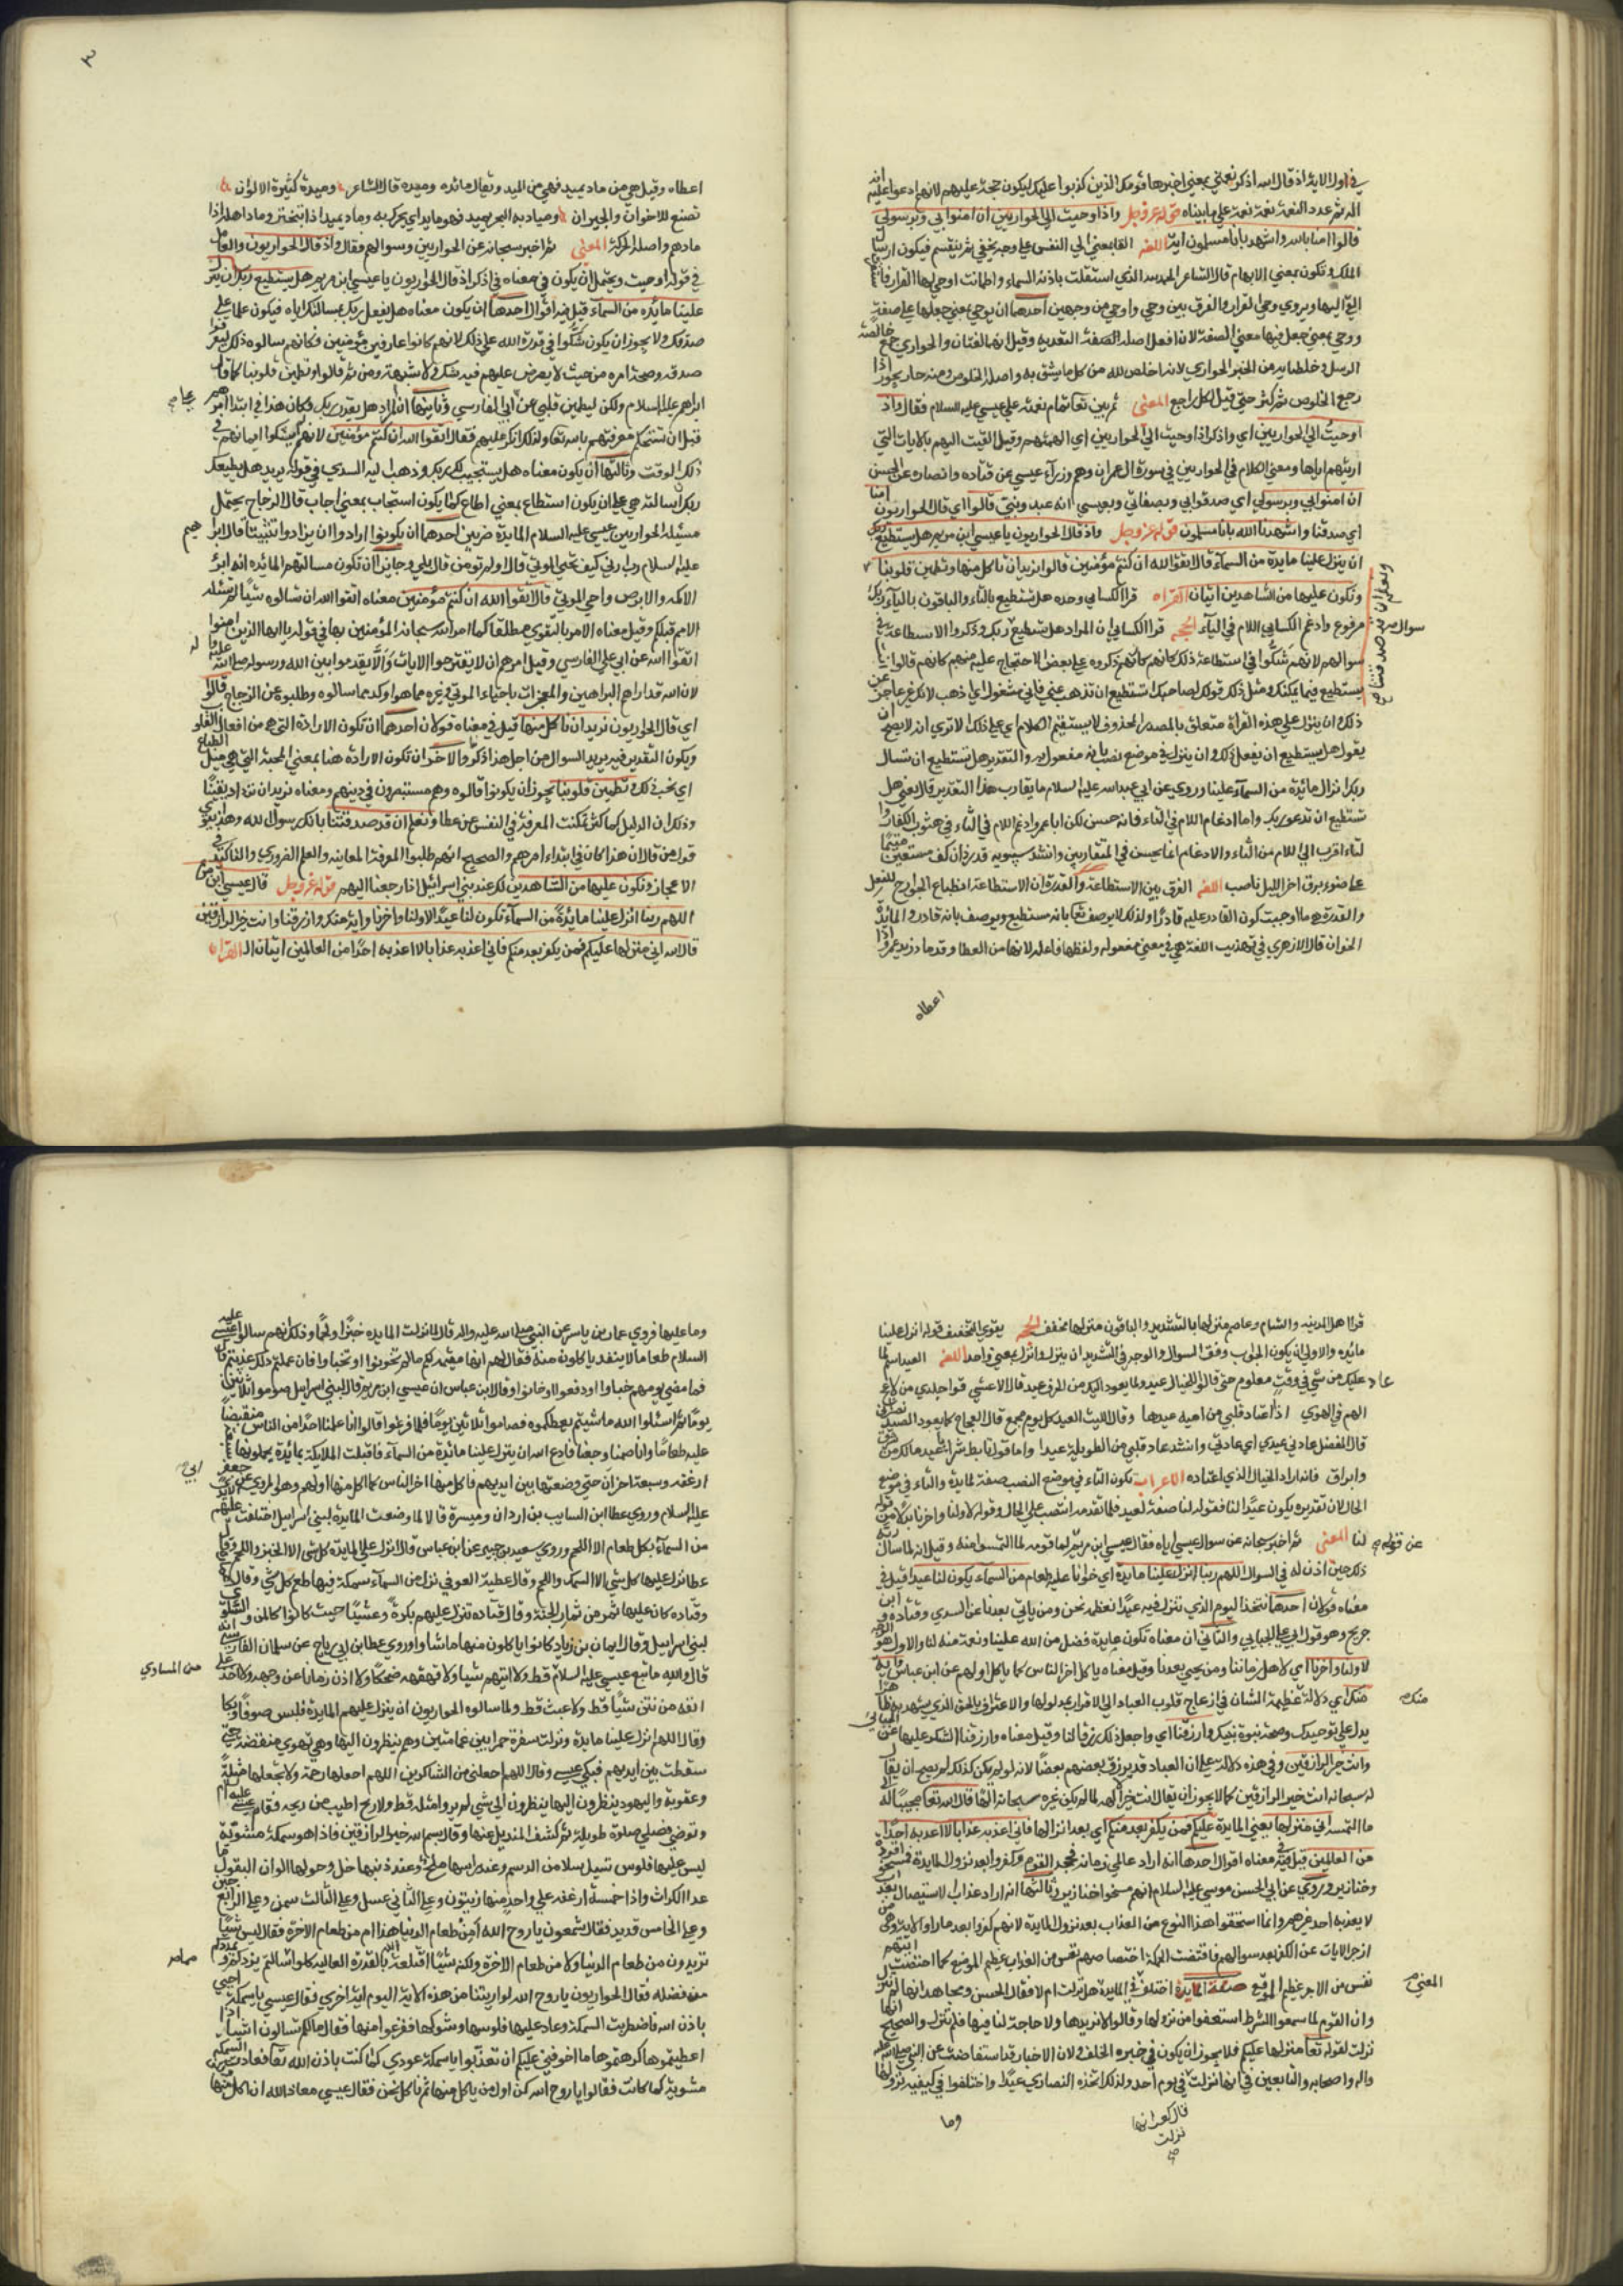 في اول الاية اذ قال الله اذكر نعمتي يعني اخبرها قومك الذين كذبوا عليك ليكون حجة عليهم لانهم ادعوا عليه انه
اله ثم عدد النعمة نعمة نعمة على ما بيناه قوله عز وجل واذ اوحيت الى الحواريين ان امنوا بي وبرسولي
قالوا امنا بالله واشهد باننا مسلمون اية اللغة القا معنى الى النفس على وجه يخفى ثم ينقسم فيكون ارسال
الملك وتكون بمعنى الالهام قال الشاعر الحمد لله الذي استقلت باذنه السماء واطمانت اوحى لها القرار فاستقرت
اي اليها ويروى وحى لها القرار والفرق بين وحى واوحى من وجهين احدهما ان اوحى بمعنى جعلها على صفة
ووحى بمعنى جعل فيها معنى الصفة لان افعل اصله الصفة التعدية وقيل انهما لغتان والحواري خالصة
الرسل وخلصانه من الخبز الحواري لانه اخلص لله من كل ما يشوبه واصله الخلوص ومنه حار يحور اذا
رجع الخلوص ثم كثر حتى قيل لكل راجع المعنى ثم بين تعالى تمام نعمته على عيسى عليه السلام فقال واذ
اوحيت الى الحواريين اي واذكر اذ اوحيت الى الحواريين اي الهمتهم وقيل القيت اليهم بالايات التي
اريتهم اياها ومعنى الكلام في الحواريين في سورة ال عمران وهم وزراء عيسى عن قتادة وانصاره عن الحسن
ان امنوا بي وبرسولي اي صدقوا بي وبصفاتي وبعيسى انه عبدي ونبيي قالوا اي قال الحواريون امنا
اي صدقنا واشهد يا الله باننا مسلمون قوله عز وجل واذ قال الحواريون يا عيسى ابن مريم هل يستطيع ربك
ان ينزل علينا مايدة من السماء قال اتقوا الله ان كنتم مؤمنين قالوا نريد ان ناكل منها وتطمين قلوبنا
ونعلم ان قد صدقتنا
ونكون عليها من الشاهدين ايتان القراة قرا الكسايي وحده هل تستطيع بالتاء والباقون بالياء ربك
مرفوع وادغم الكسايي اللام في التاء الحجة قرا الكسايي ان المراد هل تستطيع ربك وذكروا الاستطاعة في
سوالهم لانهم شكوا في استطاعة ذلك كانهم كانهم ذكروه على بعض الاحتجاج عليه منهم كانهم قالوا انك
يستطيع فيما يمكنك ومثل ذلك قولك لصاحبك استطيع ان تذهب عني فاني مشغول اي اذهب لانك غير عاجز عن
ذلك وان ينزل على هذه القراة متعلق بالمصدر المحذوف لا يستقيم الكلام اي على ذلك لا ترى انه لا يصح ان
يقول هل يستطيع ان يفعل ذلك وان ينزل في موضع نصب بانه مفعول به والتقدير هل تستطيع ان تسال
ربك انزال مائدة من السماء علينا وروي عن ابي عبد الله عليه السلام ما يقارب هذا التقدير قال يعني هل
تستطيع ان تدعو ربك واما ادغام اللام في التاء فانه حسن لكن ابا عمرو ادغم اللام في الثاء في هثوب الكفار
لتاء اقرب الى اللام من الثاء والادغام انما يحسن في المتقاربين وانشد سيبويه
على ضوء برق اخر الليل ناصب اللغة الفرق بين الاستطاعة والقدرة ان الاستطاعة انطباع الجوارح للفعل
والقدرة هي ما اوجبت كون القادر عليه قادرا ولذلك لا يوصف تعالى بانه مستطيع ويوصف بانه قادر والمائدة
الخوان قال الازهري في تهذيب اللغة هي في معنى مفعولة ولفظها فاعلة لانها من العطا وقد ماد زيد عمروا اذا
اعطاه
٣
اعطاه وقيل هي من ماد يميد فهي من الميد ويقال مائده وميده قال الشاعر وميدة كثيرة الالوان
تصنع للاخوان والجيران وميد به البحر يميد فهو مايد اي يحركه وماد يميد اذا تبختر وماد اهله اذا
مادهم واصله الحركة المعنى ثم اخبر سبحانه عن الحواريين وسوالهم فقال واذ قال الحواريون والعامل
في قوله اوحيت ويحتمل ان يكون في معناه في اذكر اذ قال الحواريون يا عيسى ابن مريم هل يستطيع ربك ان ينزل
علينا مائده من السماء قيل فيه اقوال احدها ان يكون معناه هل يفعل ربك بمسالتك اياه فيكون علما على
صدقك ولا يجوز ان يكون شكوا في قدرة الله على ذلك لانهم كانوا عارفين مؤمنين فكانهم سالوه ذلك ليعرفوا
صدقه وصحة امره من حيث لا يعرض عليهم فيه شك ولا شبهة ومن ثم قالوا وتطمين قلوبنا كما قال
ابراهيم عليه السلام ولكن ليطمين قلبي عن ابي علي الفارسي وثانيها ان المراد هل يقدر ربك فكان هذا في ابتدا امرهم
قبل ان تستحكم معرفتهم بالله تعالى ولذلك انكر عليهم فقال اتقوا الله ان كنتم مؤمنين لانهم لم يستكمل ايمانهم في
ذلك الوقت وثالثها ان يكون معناه هل يستجيب لك ربك وذهب اليه السدي في قوله يريد هل يطيعك
ربك ان سالته هي على ان يكون استطاع بمعنى اطاع كما يكون استجاب بمعنى اجاب قال الزجاج يحتمل
مسئلة الحواريين عيسى عليه السلام المايدة ضربين احدهما ان يكونوا ارادوا ان يزدادوا تثبيتا كما قال ابراهيم
عليه السلام رب ارني كيف تحيي الموتى قال اولم تومن قال بلى وجايز ان تكون مسالتهم المائده انه ابرا
الاكمه والابرص واحيى الموتى قال اتقوا الله ان كنتم مؤمنين معناه اتقوا الله ان تسالوه شيئا لم تسئله
الامم قبلكم وقيل معناه الامر بالتقوى مطلقا كما امر الله سبحانه المؤمنين بها في قوله يا ايها الذين امنوا
اتقوا الله عن ابي علي الفارسي وقيل امرهم ان لا يقترحوا الايات وان لا يقدموا بين يدي الله ورسوله
لان الله قد اراهم البراهين والمعجزات باحياء الموتى وغيره مما هو اوكد مما سالوه وطلبوه عن الزجاج قالوا
اي قال الحواريون نريد ان ناكل منها قيل في معناه قولان احدهما ان تكون الارادة التي هي من افعال القلوب
ويكون التقدير فيه يريد السوال من اجل هذا ذكروا الاخر ان تكون الارادة هنا بمعنى المحبة التي هي ميل الطباع
اي نحب ذلك وتطمين قلوبنا يجوز ان يكونوا قالوه وهم مستبصرون في دينهم ومعناه نريد ان نزداد يقينا
وذلك ان الدليل كلما كثر مكنت المعرفة في النفس عن عطا ونعلم ان قد صدقتنا بانك رسول الله وهذا يقوي
قول من قال ان هذا كان في ابتداء امرهم والصحيح انهم طلبوا المعرفة المعاينة والعلم الضروري والتاكيد في
الاعجاز ونكون عليها من الشاهدين لك عند بني اسرائيل اذا رجعنا اليهم قوله عز وجل قال عيسى ابن مريم
اللهم ربنا انزل علينا مايدة من السماء تكون لنا عيدا لاولنا واخرنا واية منك وارزقنا وانت خير الرازقين
قال الله اني منزلها عليكم فمن يكفر بعد منكم فاني اعذبه عذابا لا اعذبه احدا من العالمين ايتان القراة
قرا اهل المدينه والشام وعاصم منزلها بالتشديد والباقون منزلها مخفف الحجة يقوي التخفيف قوله انزل علينا
مائده والاولى ان يكون الجواب وفق السوال والوجه في التشديد ان ينزل وانزل بمعنى واحد اللغة العيد اسم لما
عاد عليك من شي في وقت معلوم حتى قالوا للخيال عيد ولما يعود اليك من الحزن عيد قال الاعشى
الهم في الهوى اذا اعتاد قلبي من اميمة عيدها وقال الليث العيد كل يوم مجمع قال العجاج كما يعود العيد نصراني
قال المفضل عادني عيدي اي عادتي وانشد عاد قلبي من الطويلة عيد واما قول تابط شرا يا عيد مالك من شوق
وابراق فانه اراد الخيال الذي اعتاده الاعراب تكون لنا في موضع النصب صفة لمايدة والتاء في موضع
الحال لان تقديره يكون عيدا لنا فقوله لنا صفة لعيد فلما تقدمه انتصب على الحال وقوله لاولنا واخرنا بدل من قوله
لنا المعنى ثم اخبر سبحانه عن سوال عيسى اياه فقال عيسى ابن مريم لما قومه لما التمسوا منه وقيل انه لما سال ربه
ذلك حين اذن له في السوال اللهم ربنا انزل علينا مايدة اي خوانا عليه طعام من السماء يكون لنا عيدا قيل في
معناه قولان احدهما نتخذ اليوم الذي تنزل فيه عيدا نعظمه نحن ومن ياتي بعدنا عن السدي وقتادة وابن
جريج وهو قول ابي علي الجبايي والثاني ان معناه تكون عايدة فضل من الله علينا ونعمة منه لنا والاول هو الوجه
لاولنا واخرنا اي لاهل زماننا ومن يجيي بعدنا وقيل معناه ياكل اخر الناس كما ياكل اولهم عن ابن عباس واية
منك اي دلالة عظيمة الشان في ازعاج قلوب العباد الى الاقرار بمدلولها والاعتراف بالحق الذي يشهد به ظاهرها
يدل على توحيدك وصحة نبوة نبيك وارزقنا اي واجعل ذلك رزقا لنا وقيل معناه وارزقنا الشكر عليها عن الجبائي
وانت خير الرازقين وفي هذه دلالة على ان العباد قد يرزق بعضهم بعضا لانه لو لم يكن كذلك لم يصح ان يقال
له سبحانه انت خير الرازقين كما لا يجوز ان يقال انت خير الالهة لما لم يكن غيره سبحانه الها قال الله تعالى مجيبا له الى
ما التمسه اني منزلها يعني المايدة عليكم فمن يكفر بعد منكم اي بعد انزالها فاني اعذبه عذابا لا اعذبه احدا
من العالمين قيل في معناه اقوال احدها انه اراد عالمي زمانه فجحد القوم وكفروا بعد نزول المايدة فمسخوا قردة
وخنازير وروي عن ابي الحسن موسى عليه السلام انهم مسخوا خنازير وثالثها انه اراد عذاب الاستيصال
لا يعذب به احد غيرهم وانما استحقوا هذا النوع من العذاب بعد نزول المايدة لانهم كفروا بعد ما راوا الاية وهي من
ازجر الايات عن الكفر بعد سوالهم فاقتضت الحكمة اختصاصهم بنفس من العذاب عظيم الموضع كما اختصت ايتهم
نفس من الاجر عظيم الموقع صفة المايدة اختلف في المايدة هل نزلت ام لا فقال الحسن ومجاهد انها لم تنزل
وان القوم لما سمعوا الشرط استعفوا من نزولها وقالوا لا نريدها ولا حاجة لنا فيها فلم تنزل والصحيح انها
نزلت لقوله تعالى اني منزلها عليكم فلا يجوز ان يكون في خبره الخلف ولان الاخبار قد استفاضت عن النبي صلى الله عليه
واله واصحابه والتابعين في انها نزلت في يوم احد ولذلك اتخذه النصارى عيدا واختلفوا في كيفية نزولها
قال كعب انها
نزلت
وما
وما عليها فروي عمار بن ياسر عن النبي صلى الله عليه واله قال نزلت المايده خبزا ولحما وذلك انهم سالوا عيسى عليه
السلام طعاما لا ينفد ياكلون منه فقال لهم انها مقيمة لكم ما لم تخونوا او تخبوا فان فعلتم ذلك عذبتم قال
فما مضى يومهم حتى خبوا ورفعوا وخانوا وقال ابن عباس ان عيسى ابن مريم قال لبني اسرائيل صوموا ثلاثين
يوما ثم اسئلوا الله ما شيتم يعطكموه فصاموا ثلاثين يوما فلما فرغوا قالوا انا لو عملنا لاحد من الناس
عليه طعاما وانا صمنا وجعنا فادع الله ان ينزل علينا مائدة من السماء فاقبلت الملائكة بمائدة يحملونها
ارغفة وسبعة احوات حتى وضعتها بين ايديهم فاكل منها اخر الناس كما اكل منها اولهم وهو المروي عن ابي جعفر
عليه السلام وروي عطا ابن السايب بن زاذان وميسرة قالا لما وضعت المايدة لبني اسرائيل اختلفت عليهم الايدي
من السماء بكل طعام الا اللحم وروى سعيد بن جبير عن ابن عباس قال انزل على المايدة كل شي الا الخبز واللحم وقال
عطا نزل عليها كل شي الا السمك واللحم وقال عطية العوفي نزل من السماء سمكة فيها طعم كل شي وقال
وقتاده كان عليها ثمر من ثمار الجنة وقال قتاده تنزل عليهم بكرة وعشيا حيث كانوا كالمن والسلوى
لبني اسراييل وقال يمان بن زياد كانوا ياكلون منها ما شاوا وروي عطا بن ابي رباح عن سلمان الفارسي انه
قال والله ما تبع عيسى عليه السلام قط ولا انتهر شيا ولا قهقه ضحكا ولا اذب ذبابا عن وجهه ولا اخذ على
من المساوي
انفه من نتن شيئا قط ولا عبث قط ولما سالوه الحواريون ان ينزل عليهم المايدة فلبس صوفا وبكا
وقال اللهم انزل علينا مايدة ونزلت سفرة حمرا بين غمامتين وهم ينظرون اليها وهي تهوي منقضة حتى
سقطت بين ايديهم فبكى عيسى وقال اللهم اجعلني من الشاكرين اللهم اجعلها رحمة ولا تجعلها مثلة
وعقوبة واليهود ينظرون اليها ينظرون الى شي لم يروا مثله قط ولا ريح اطيب من ريحه فقام عيسى عليه السلام
وتوضى فصلى صلوة طويلة ثم كشف المنديل عنها وقال بسم الله خير الرازقين فاذا هو سمكة مشوية
ليس عليها فلوس تسيل سيلا من الدسم وعند راسها ملح وعند ذنبها خل وحولها الوان البقول ما
عدا الكراث واذا خمسة ارغفة على واحد منها زيتون وعلى الثاني عسل وعلى الثالث سمن وعلى الرابع جبن
وعلى الخامس قديد فقال شمعون يا روح الله امن طعام الدنيا هذا ام من طعام الاخرة فقال ليس شيا
تريدون من طعام الدنيا ولا من طعام الاخرة ولكنه شيئا افتعله الله بالقدرة العالية كلوا ما سالتم يمددكم
من فضله فقال الحواريون يا روح الله لو اريتنا من هذه الاية اليوم اية اخرى فقال عيسى يا سمكة احيي
باذن الله فاضطربت السمكة وعاد عليها فلوسها وشوكها ففزعوا منها فقال مالكم تسالون اشياء اذا
اعطيتموها كرهتموها ما اخوفني عليكم ان تعذبوا يا سمكة عودي كما كنت باذن الله تعالى فعادت السمكة
مشوية كما كانت فقالوا يا روح الله كن اول من ياكل منها ثم ناكل نحن فقال عيسى معاذ الله ان اكل منها